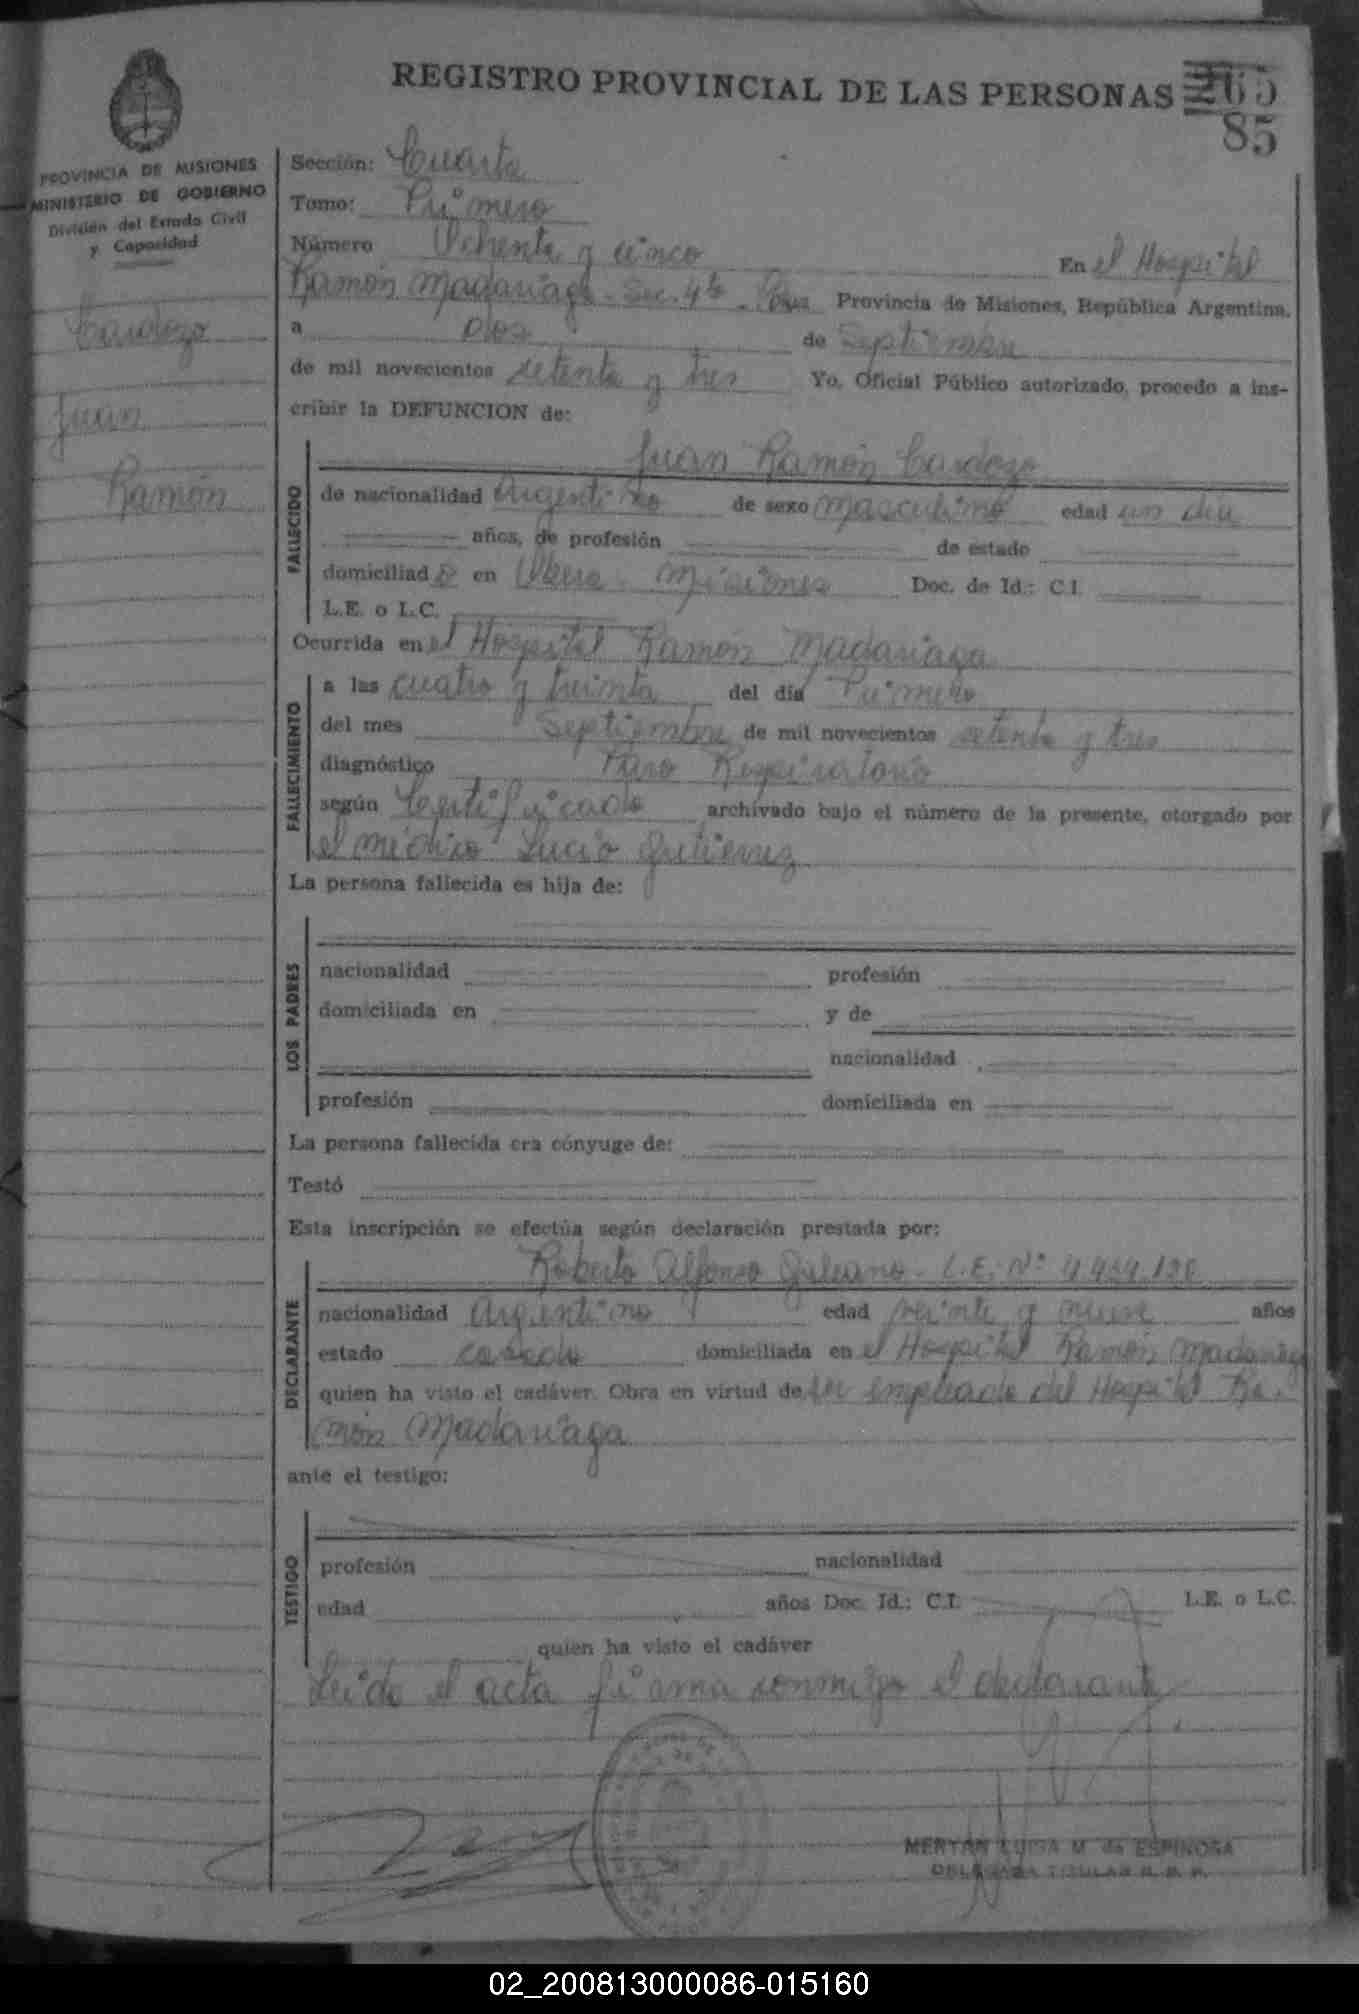 REGISTRO PROVINCIAL DE LAS PERSONAS 265
85
PROVINCIA DE MISIONES
MINISTERIO DE GOBIERNO
División del Estado Civil
y Capacidad
Cardozo
Juan
Ramón
Sección: Cuarta
Tomo: Primero
Número Ochenta y cinco En el Hospital
Ramón Madariaga - Sec. 4ta - Provincia de Misiones, República Argentina,
a dos de Septiembre
de mil novecientos setenta y tres Yo, Oficial Público autorizado, procedo a ins-
cribir la DEFUNCION de:
FALLECIDO
Juan Ramón Cardozo
de nacionalidad Argentino de sexo masculino edad un día
años, de profesión de estado
domiciliado en Oberá - Misiones Doc. de Id.: C.I.
L.E. o L.C.
Ocurrida en el Hospital Ramón Madariaga
FALLECIMIENTO
a las cuatro y treinta del día Primero
del mes Septiembre de mil novecientos setenta y tres
diagnóstico Paro Respiratorio
según Certificado archivado bajo el número de la presente, otorgado por
el médico Lucio Gutierrez
La persona fallecida es hija de:
LOS PADRES
nacionalidad profesión
domiciliada en y de
nacionalidad
profesión domiciliada en
La persona fallecida era cónyuge de:
Testó
Esta inscripción se efectúa según declaración prestada por:
DECLARANTE
Roberto Alfonso Galeano - L.E. Nº
nacionalidad Argentino edad veinte y nueve años
estado casado domiciliada en el Hospital Ramón Madariaga
quien ha visto el cadáver. Obra en virtud de ser empleado del Hospital Ra-
món Madariaga
ante el testigo:
TESTIGO
profesión nacionalidad
edad años Doc. Id.: C.I. L.E. o L.C.
quien ha visto el cadáver
Leido el acta firma conmigo el declarante
MERTAN LUISA M. de ESPINOSA
DELEGADA TITULAR R. P. P.
02_200813000086-015160